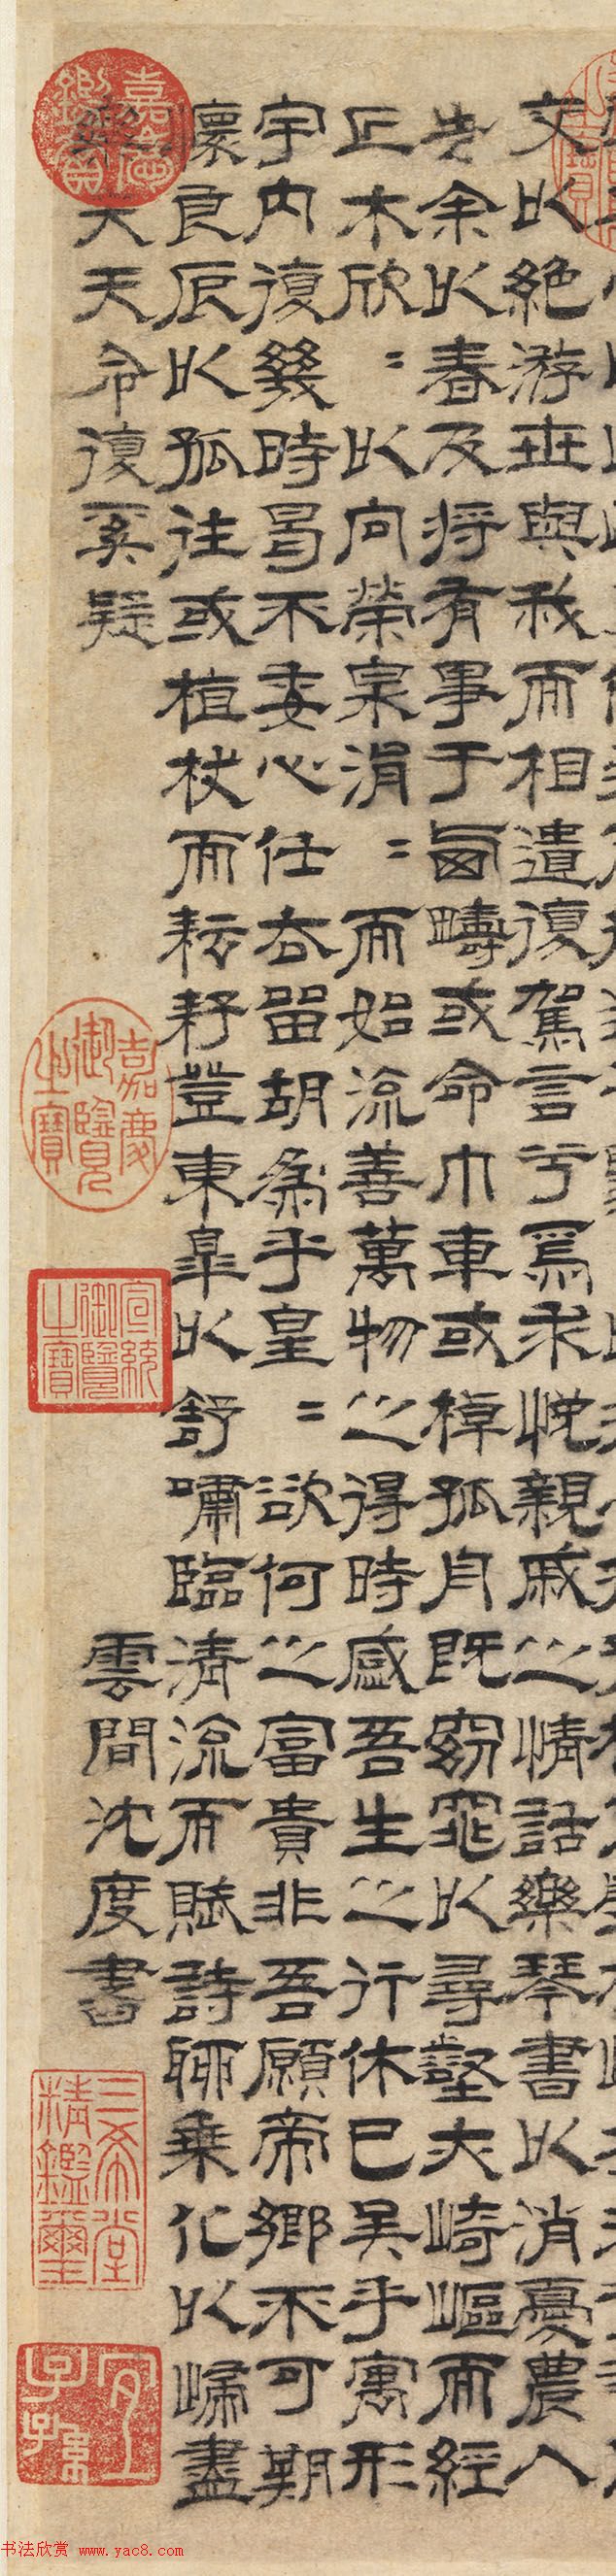 交以絕游世與我而相遺復駕言兮焉求悅親戚之情話樂琴書以消憂農人
告余以春及將有事于西疇或命巾車或棹孤舟既窈窕以尋壑亦崎嶇而經
丘木欣〻以向榮泉涓〻而始流善萬物之得時感吾生之行休已矣乎寓形
宇内復幾時曷不委心任去留胡為乎皇〻欲何之富貴非吾願帝鄉不可期
懷良辰以孤往或植杖而耘耔登東皋以舒嘯臨清流而賦詩聊乘化以歸盡
樂夫天命復奚疑
雲間沈度書
嘉慶鑑賞
嘉慶御覽之寶
宣統御覽之寶
三希堂精鑑璽
宜子孫
书法欣赏 www.yac8.com